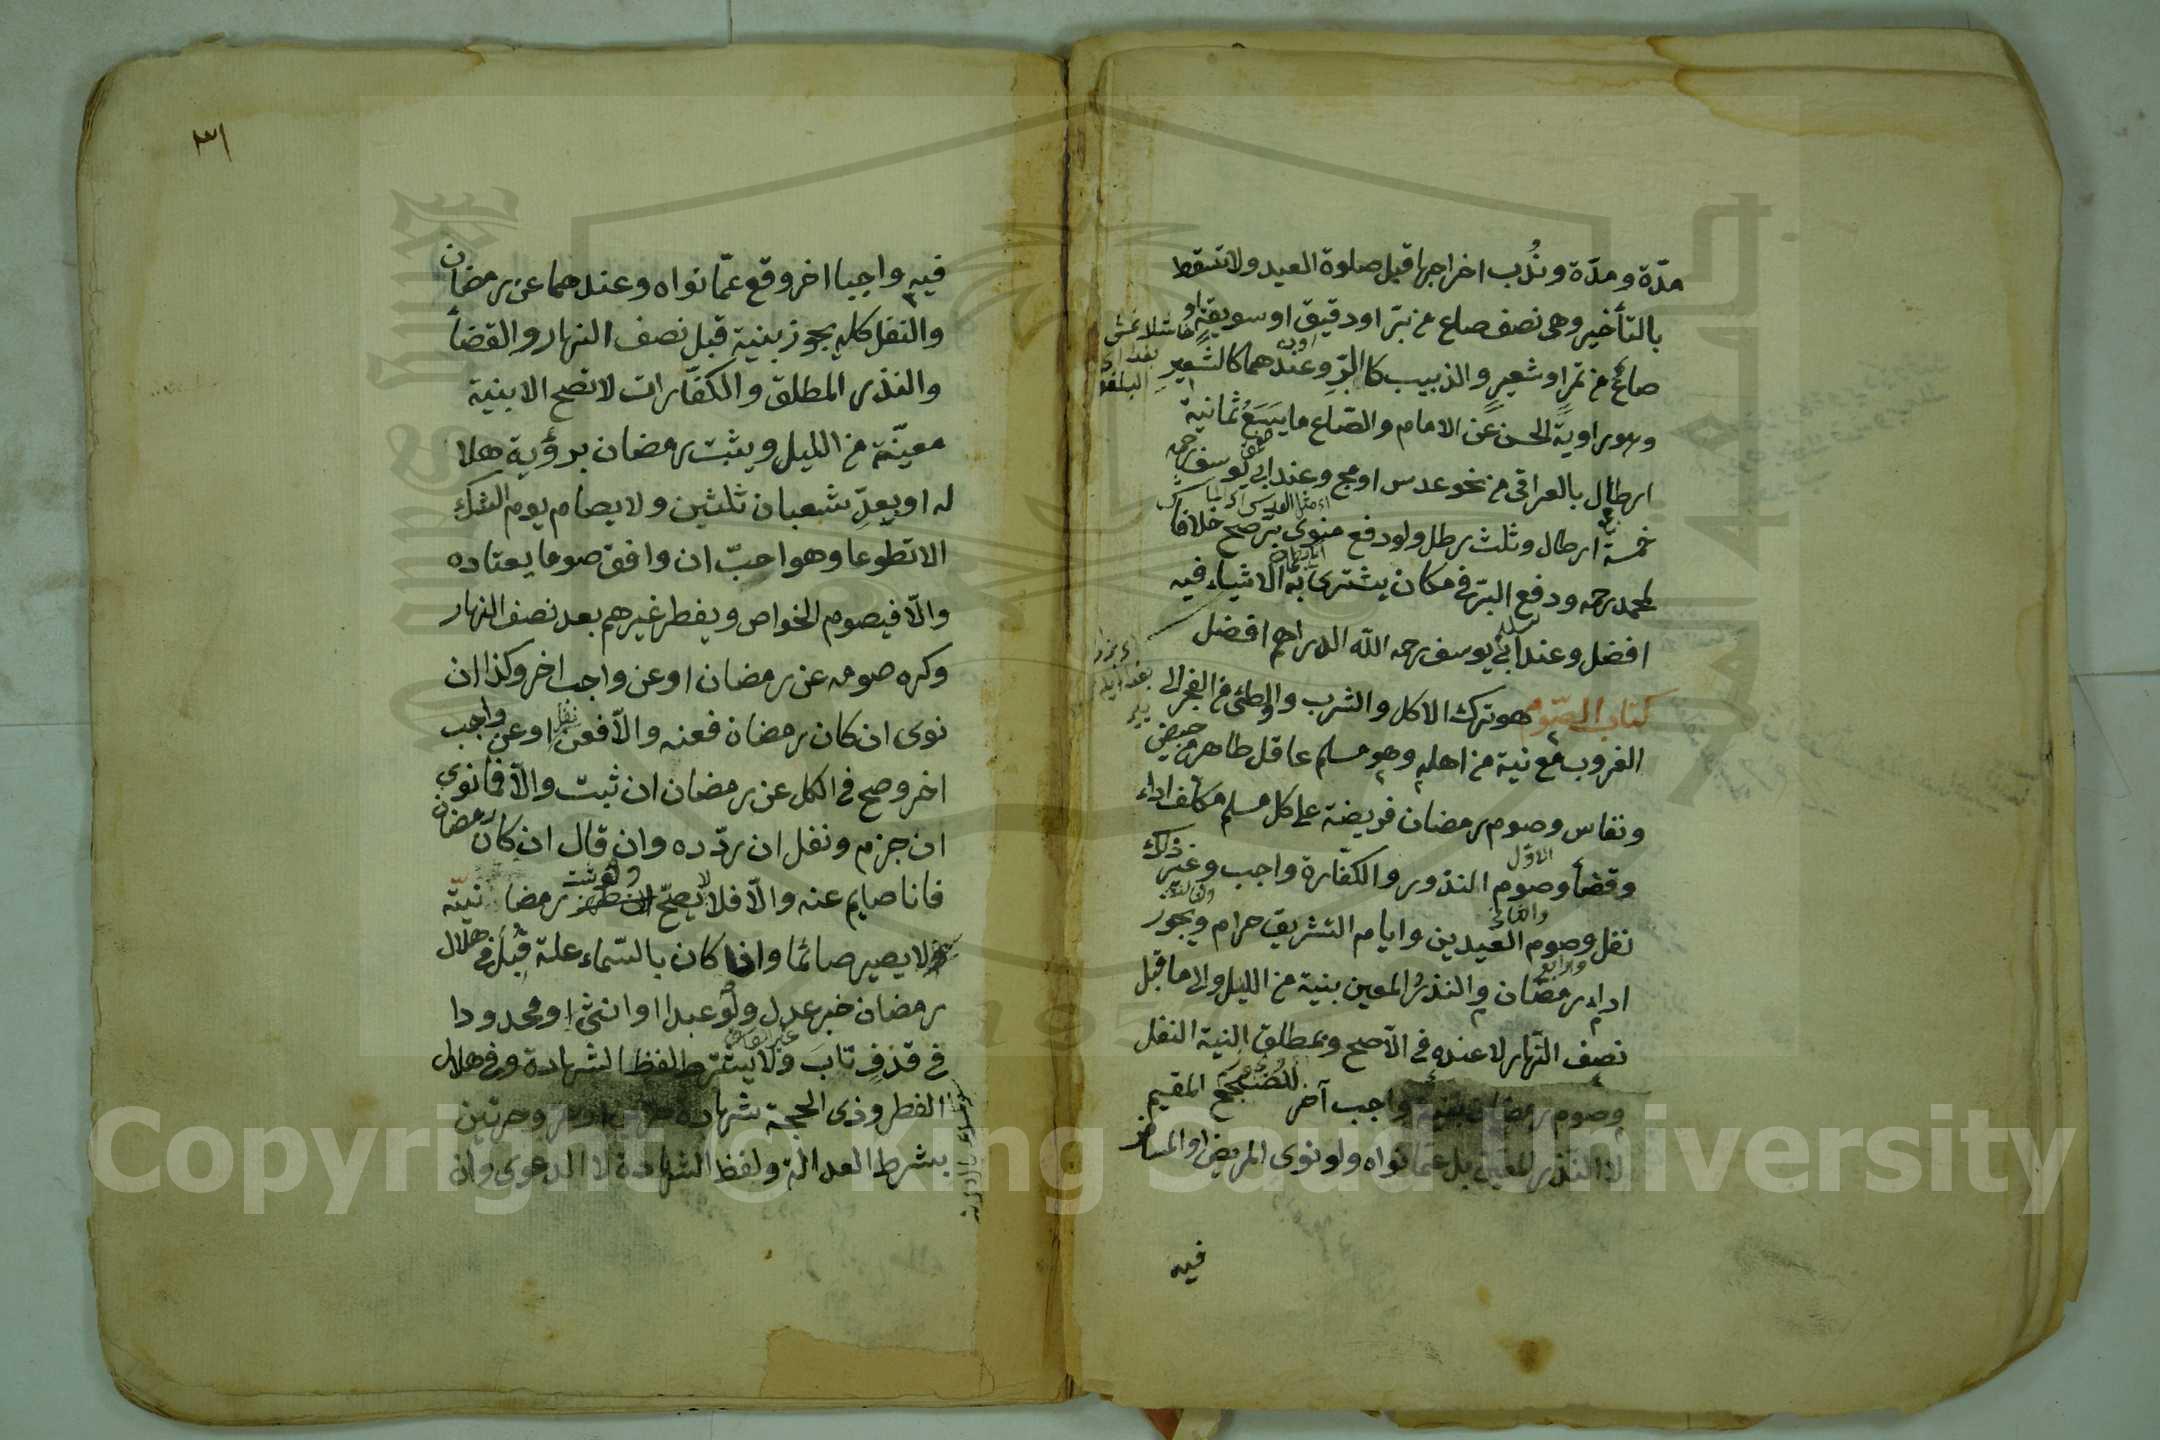 مدّة ومدّة ونُدب اخراجها قبل صلوة العيد ولا تسقط
بالتأخير وهى نصف صاع من بتر او دقيق او سويقه او
صاع من تمر او شعير والذبيب كالبرّ وعندهما كالشعير
وهو رواية الحسن عن الامام والصّاع ما يسَعُ ثمانية
ارطال بالعراقى من نحو عدس او مج وعند ابى يوسف رحمه
خمسة ارطال وثلث رطل ولو دفع منوى برّ صح خلافا
لمحمد رحمه ودفع البرّ فى مكان يشترى به الاشياء فيه
افضل وعند ابى يوسف رحمه الله الدراهم افضل
كتاب الصّوم هو ترك الاكل والشرب والوطئ من الفجر الى
الغروب مع نية من اهله وهو مسلم عاقل طاهر من حيض
ونفاس وصوم رمضان فريضة على كل مسلم مكلف اداء
وقضأ وصوم النذور والكفّارة واجب وغير ذلك
نفل وصوم العيدين وايام التشريق حرام ويجوز
اداء رمضان والنذر المعين بنية من الليل والى ما قبل
نصف النّهار لا عنده فى الاصح وبمطلق النية النفل
وصوم رمضان بنية واجب آخر للصحيح المقيم
لا النذر المعين بل عمّا نواه ولو نوى المريض او المسافر
فيه
٣١
فيه واجبا اخر وقع عمّا نواه وعندهما عن رمضان
والنفل كله يجوز بنية قبل نصف النهار والقضأ
والنذر المطلق والكفّارات لا تصح الا بنية
معيّنة من الليل ويثبت رمضان برؤية هلا
له او بعدّ شعبان ثلثين ولا يصام يوم الشك
الا تطوعا وهو احبّ ان وافق صوما يعتاده
والّا فيصوم الخواص ويفطر غيرهم بعد نصف النهار
وكره صومه عن رمضان او عن واجب اخر وكذا ان
نوى ان كان رمضان فعنه والّا فعن نفل او عن واجب
اخر وصح فى الكل عن رمضان ان ثبت والّا فما نوى
ان جزم ونفل ان ردّده وان قال ان كان رمضان
فانا صايم عنه والّا فلا لا يصحّ ولو ثبت رمضا نيّته
ولا يصير صائما واذا كان بالسّماء علة قُبل فى هلال
رمضان خبر عدل ولو عبدا او انثى او محدودا
فى قذفٍ تابَ ولا يشترط لفظ الشهادة وفى هلال
الفطر وذى الحجة شهادة حرّين او حرّ وحرتين
بشرط العدالة ولفظ الشهادة لا الدعوى وان
Copyright © King Saud University